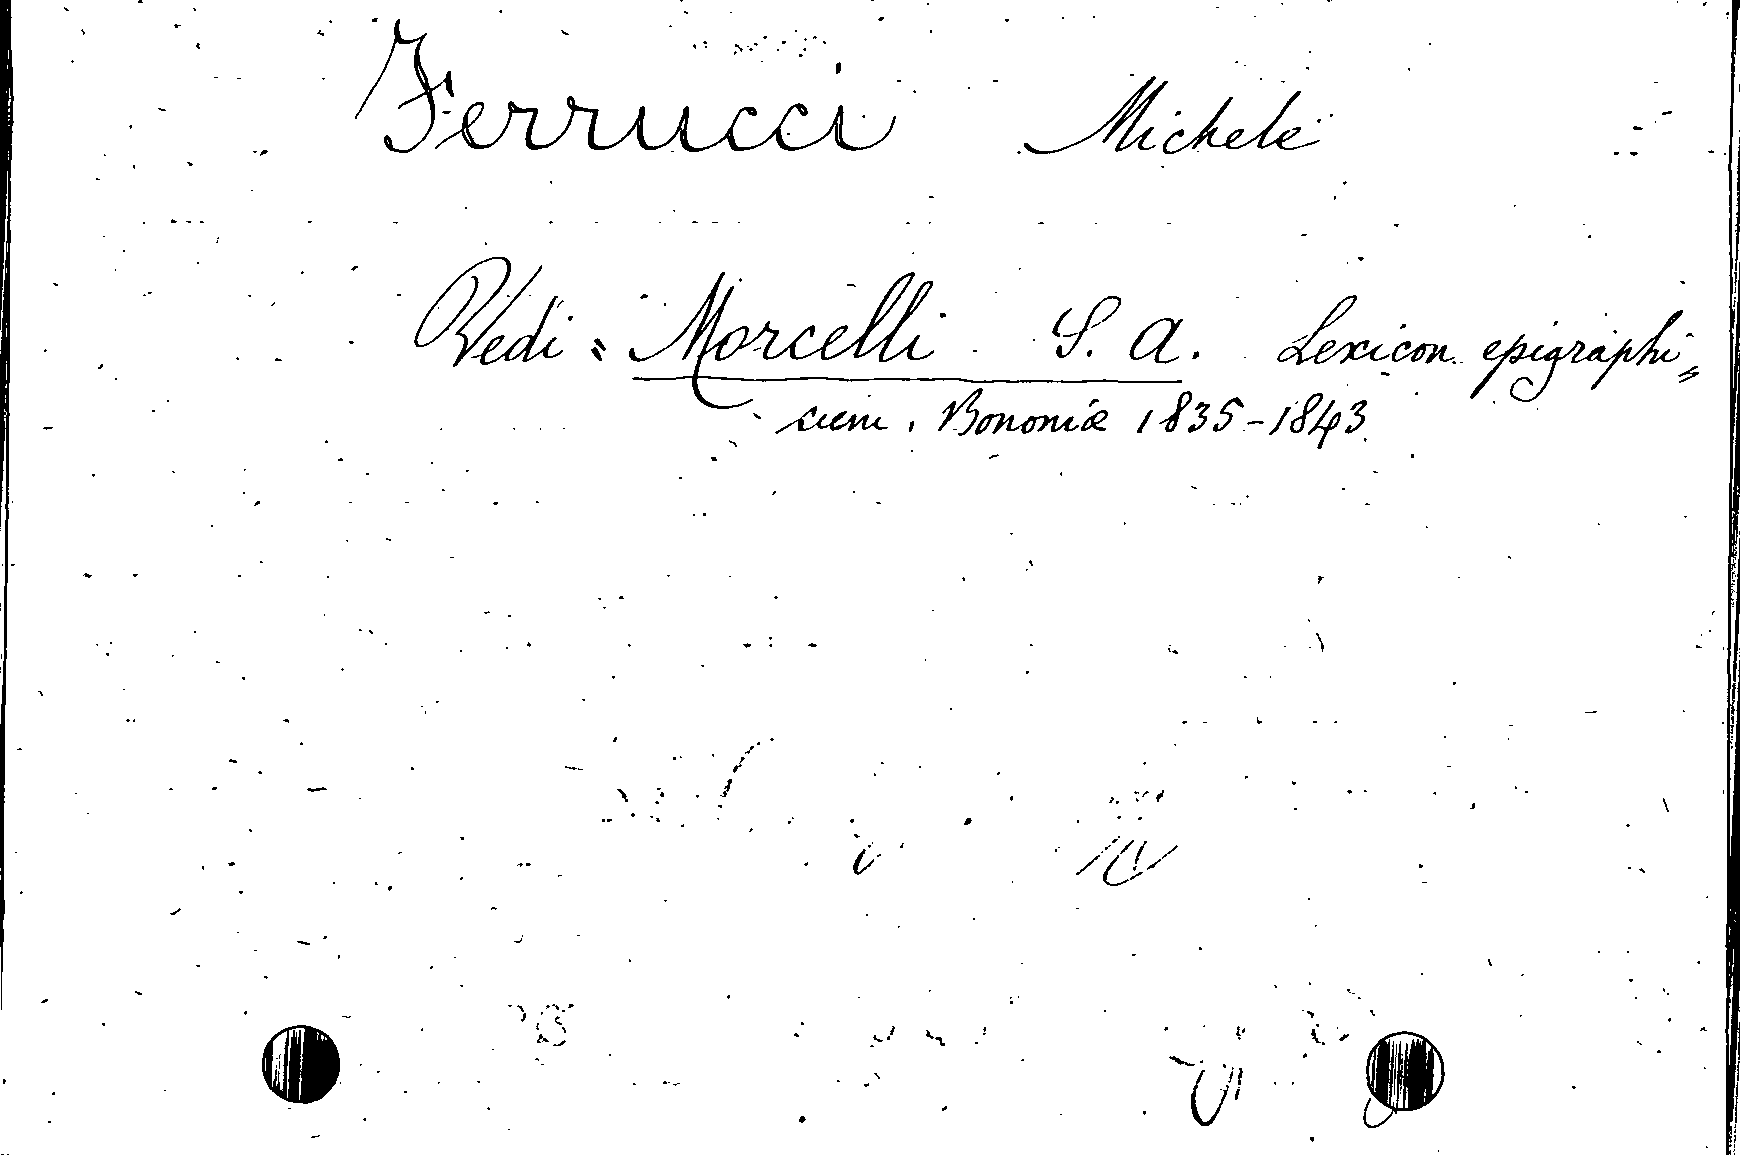 Ferrucci Michele
Vedi = Morcelli S. A. Lexicon epigraphi=
cum. Bononiæ 1835-1843